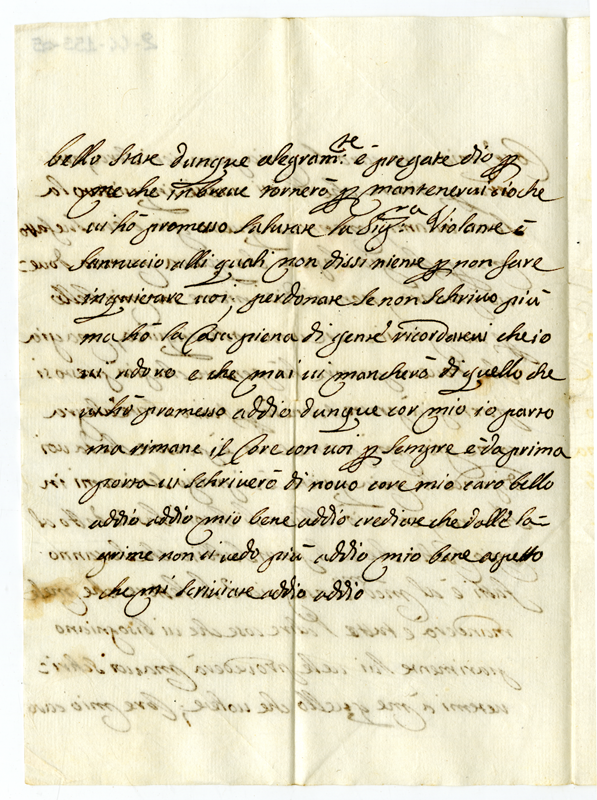 bello state dunque alegram:te è pregate dio p
me che in breve tornerò p mantenervi cioche
vi hò promesso salutate la Sig:ra Violante è
alli quali non dissi niente p non fare
inquietare voi, perdonate se non schrivo più
ma hò la Casa piena di gente ricordatevi che io
vi adoro è che mai vi mancherò di quello che
vi hò promesso addio dunque cor mio io parto
ma rimane il Core con voi p sempre è da prima
posta vi schriverò di novo core mio caro bello
addio addio mio bene addio crediate che dalle la=
grime non ci vedo più addio mio bene aspetto
che mi scriviate addio addio